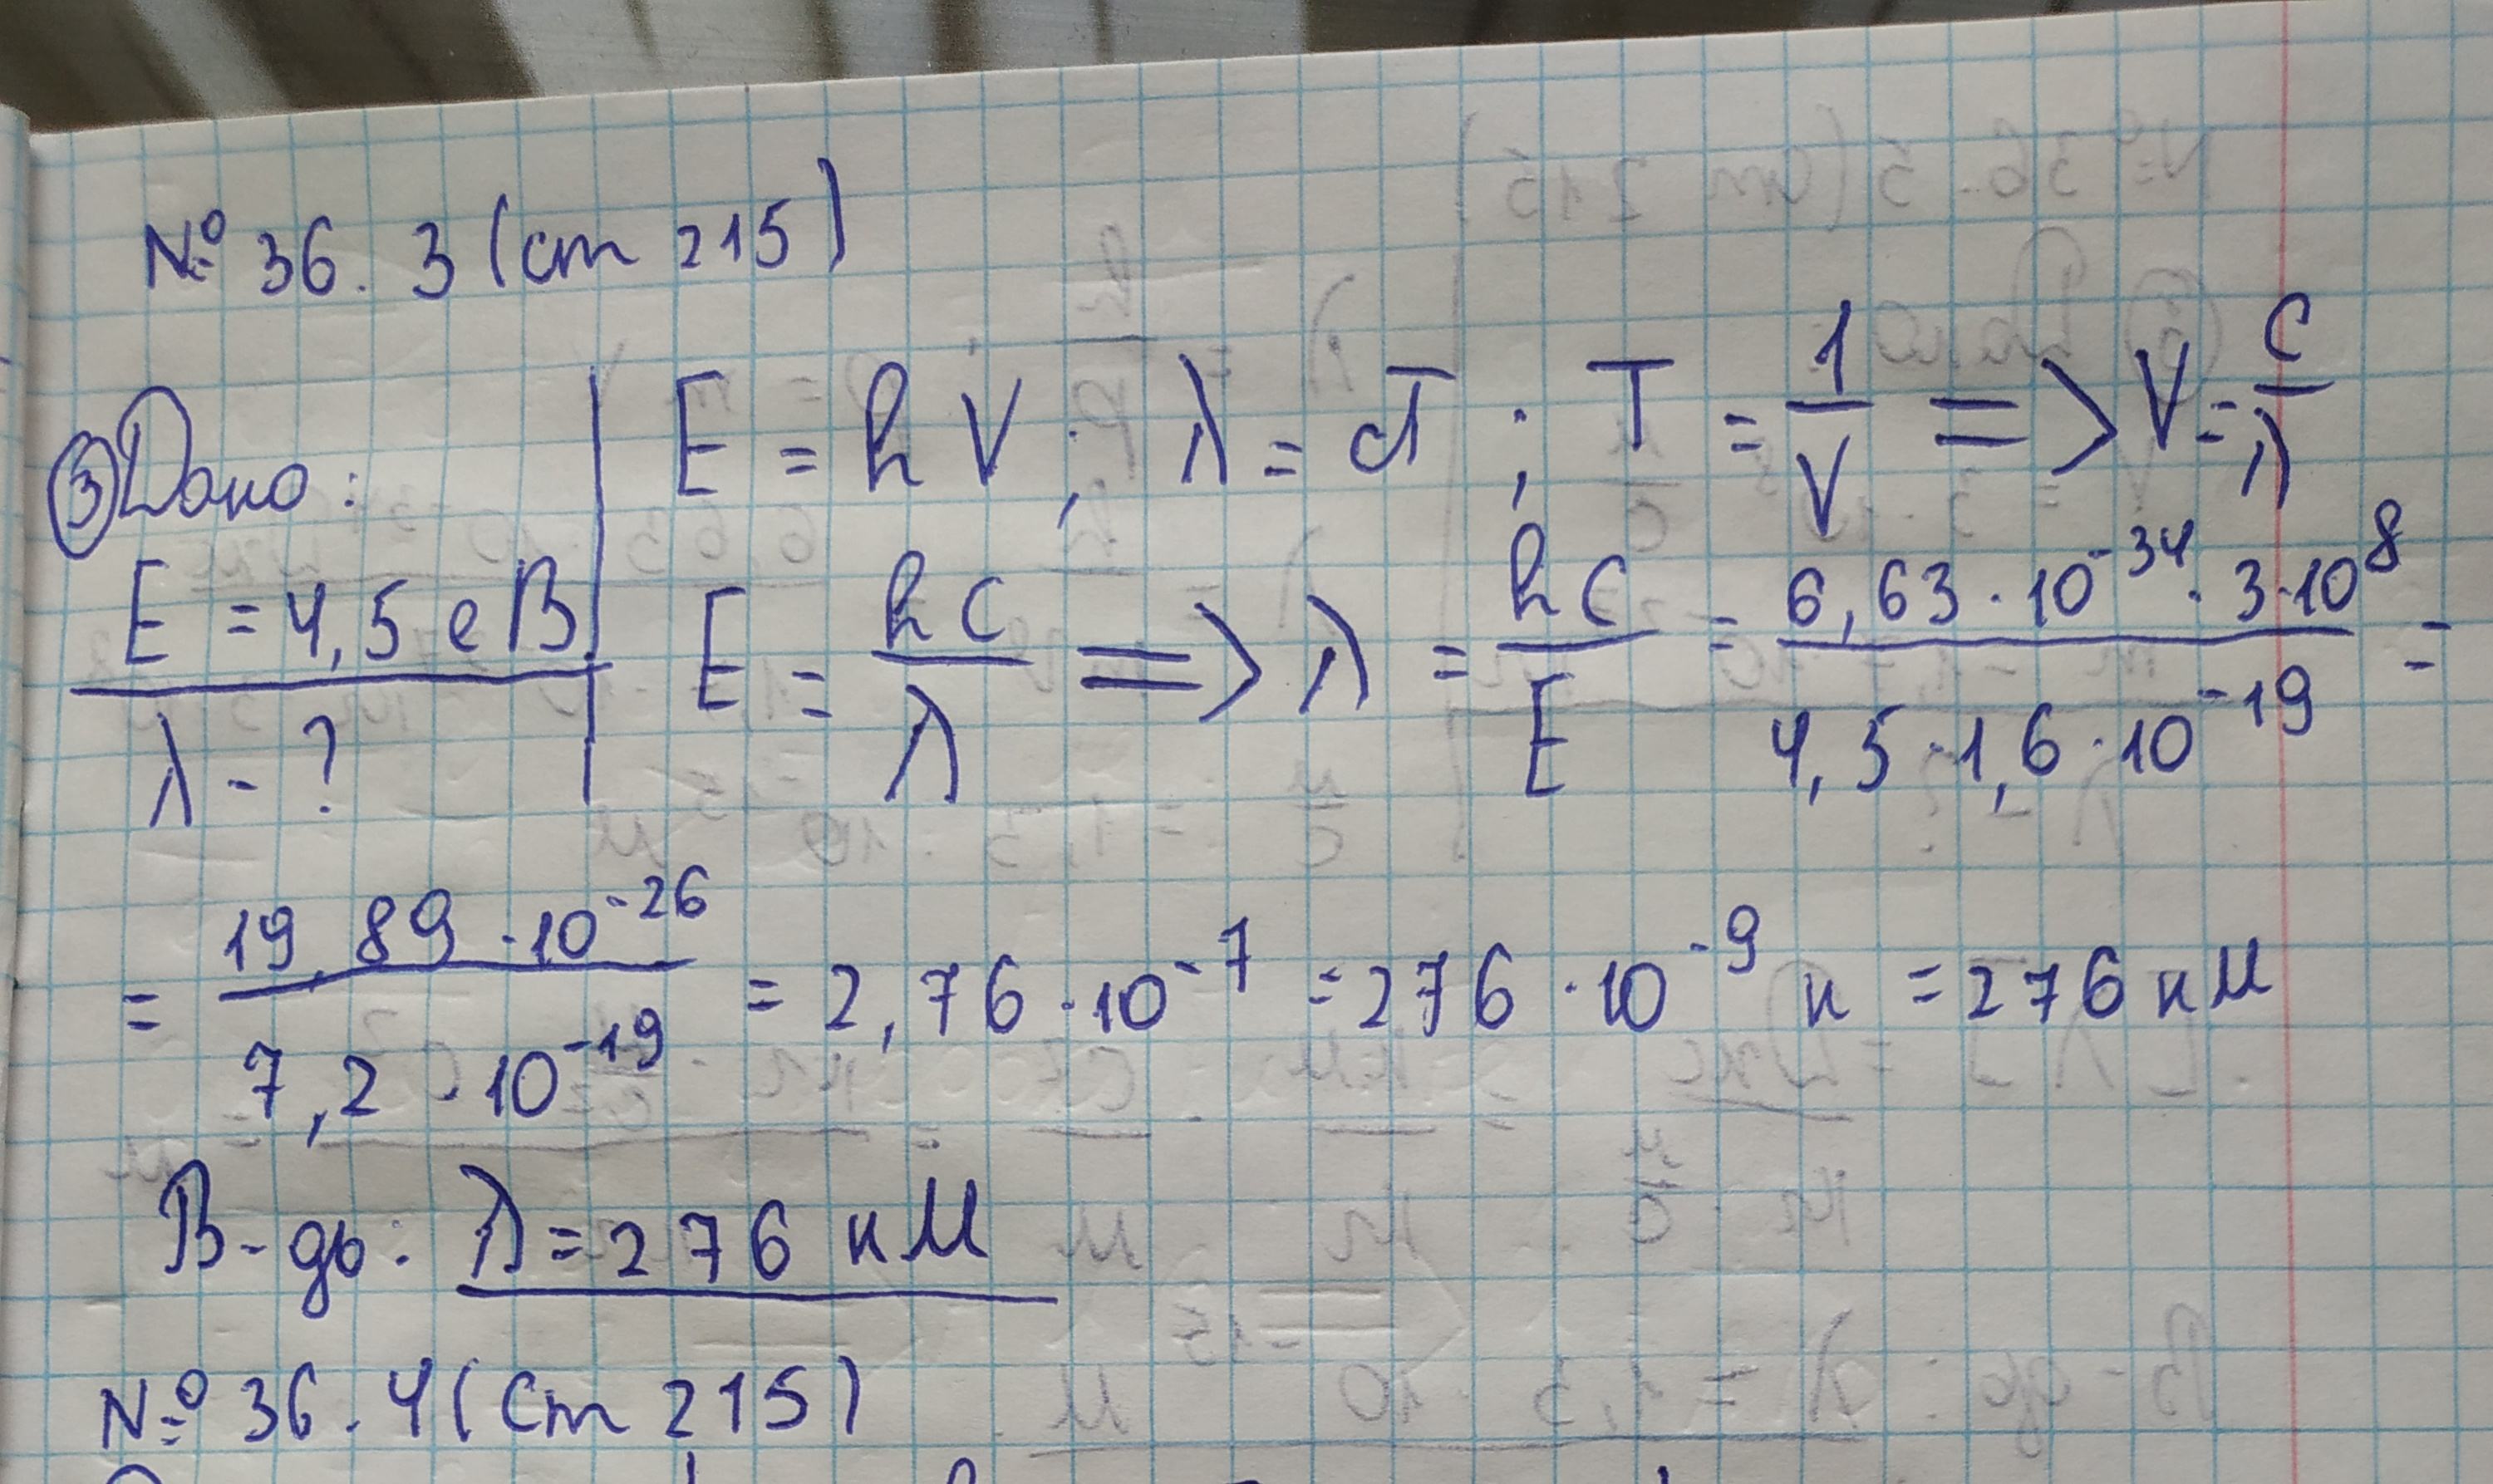 № 36. 3 (ст 215)
③ Дано:
E = 4,5 еВ
λ - ?
E = hV; λ = cT; T = 1/V => V = c/λ
E = hc/λ => λ = hc/E = 6,63·10⁻³⁴·3·10⁸ / 4,5·1,6·10⁻¹⁹ =
= 19,89·10⁻²⁶ / 7,2·10⁻¹⁹ = 2,76·10⁻⁷ = 276·10⁻⁹ н = 276 нм
В-дь: λ = 276 нм
№ 36. 4 (ст 215)